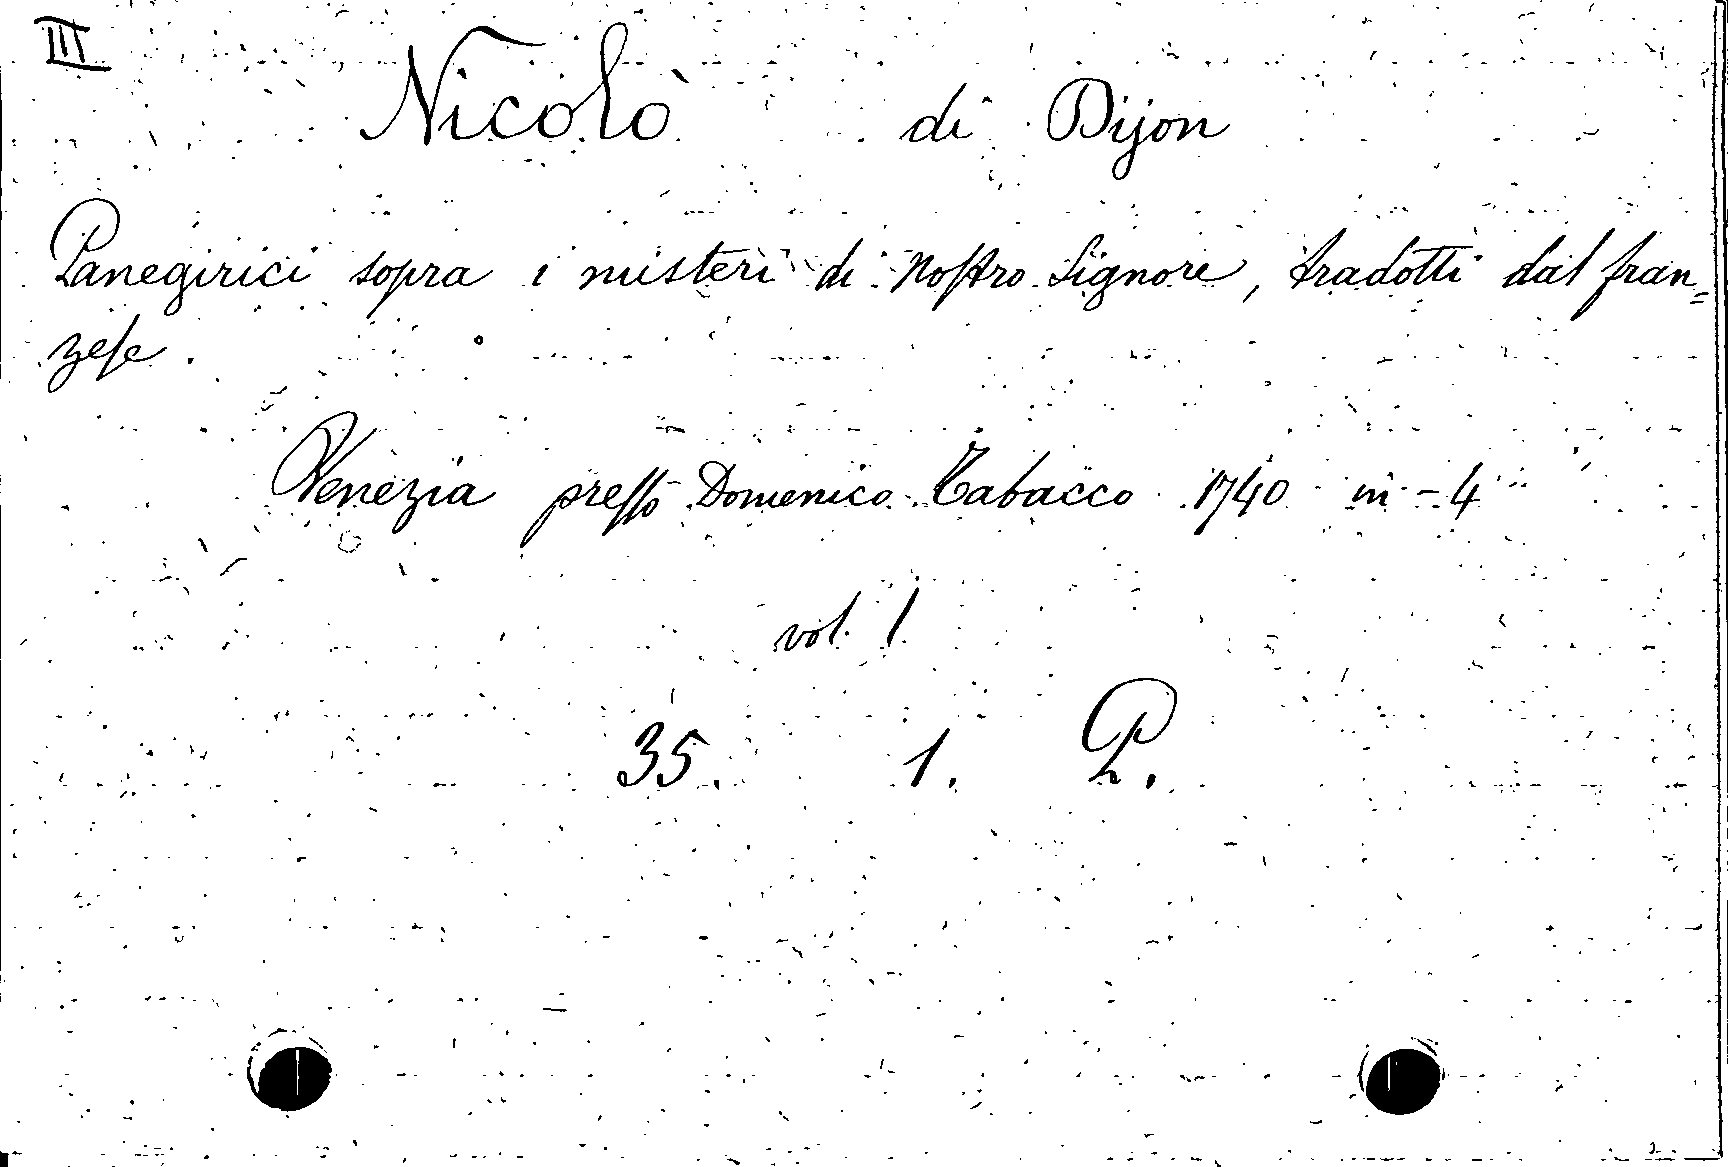 III
Nicolò di Dijon
Panegirici sopra i misteri di Noſtro Signore, tradotti dal fran=
zeſe.
Venezia preſſo Domenico Tabacco 1740 in - 4
vol. 1
35. 1. P.